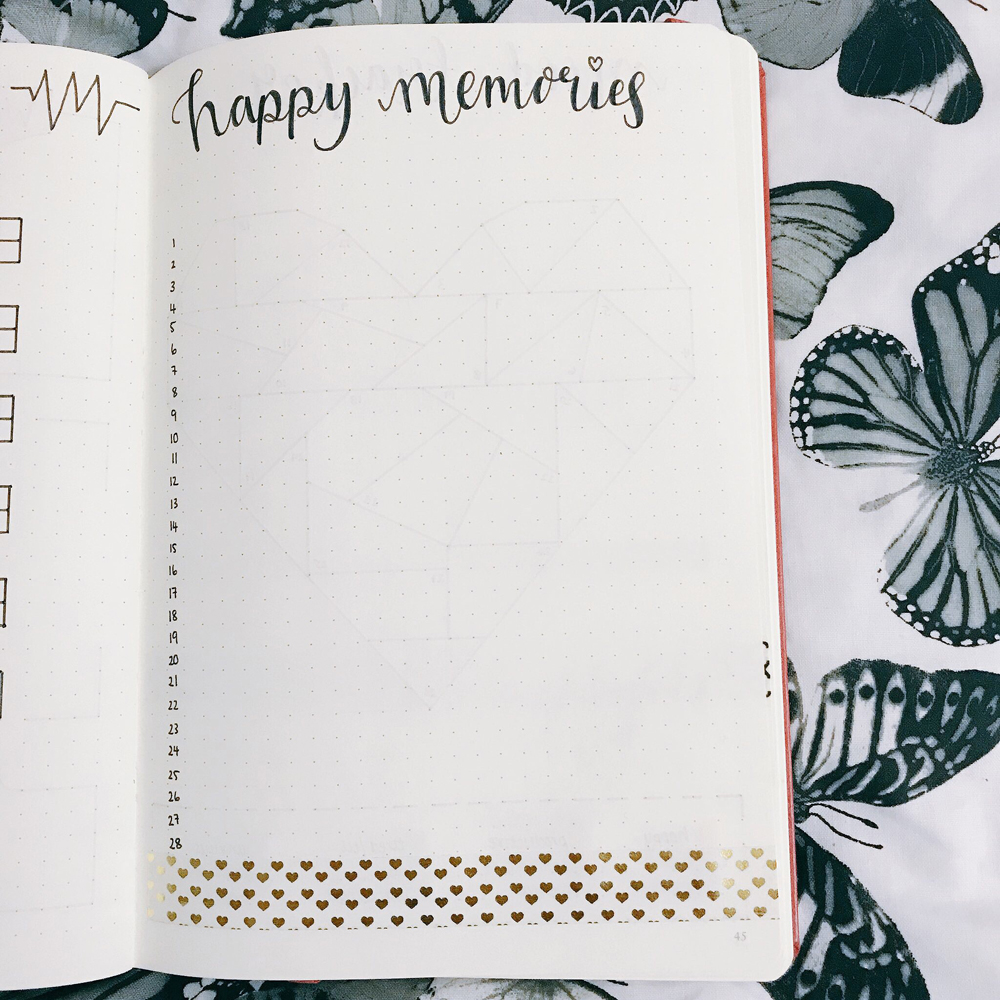 happy memories
1
2
3
4
5
6
7
8
9
10
11
12
13
14
15
16
17
18
19
20
21
22
23
24
25
26
27
28
45